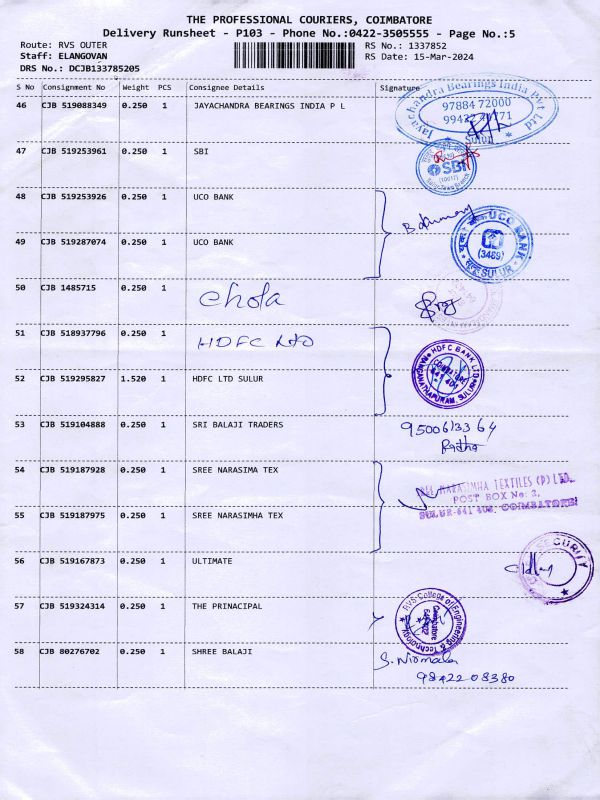 THE PROFESSIONAL COURIERS, COIMBATORE
Delivery Runsheet - P103 - Phone No.:0422-3505555 - Page No.:5
Route: RVS OUTER
Staff: ELANGOVAN
DRS No.: DCJB133785205
RS No.: 1337852
RS Date: 15-Mar-2024
S No Consignment No Weight PCS Consignee Details Signature
46 CJB 519088349 0.250 1 JAYACHANDRA BEARINGS INDIA P L
Jayachandra Bearings India Pvt Ltd
97884 72000
Sulur
47 CJB 519253961 0.250 1 SBI
SBI
48 CJB 519253926 0.250 1 UCO BANK
49 CJB 519287074 0.250 1 UCO BANK
UCO BANK
(3469)
SULUR
50 CJB 1485715 0.250 1 Chola
51 CJB 518937796 0.250 1 HDFC LTD
52 CJB 519295827 1.520 1 HDFC LTD SULUR
HDFC BANK LTD
COIMBATORE
641 401
RANGANATHAPURAM, SULUR
53 CJB 519104888 0.250 1 SRI BALAJI TRADERS
9500613364
Radha
54 CJB 519187928 0.250 1 SREE NARASIMA TEX
55 CJB 519187975 0.250 1 SREE NARASIMHA TEX
SREE NARASIMHA TEXTILES (P) LTD.
POST BOX No: 2,
SULUR-641 402, COIMBATORE
56 CJB 519167873 0.250 1 ULTIMATE
SECURITY
57 CJB 519324314 0.250 1 THE PRINACIPAL
RVS College of Engineering & Technology
Coimbatore
641 402
58 CJB 80276702 0.250 1 SHREE BALAJI
S. Nirmala
9842208380